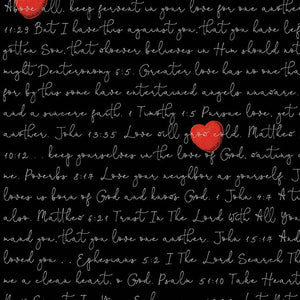 Above all, keep fervent in your love for one another
11:29 But I have this against you, that you have lef
gotten Son, that whoever believes in Him should not
might Deuteronomy 6:5. Greater love has no one tha
for by this some have entertained angels unaware
and a sincere faith. 1 Timothy 1:5 Pursue love, yet
another. John 13:35 Love will grow cold. Matthew
10:12... keep yourselves in the love of God, waiting
me. Proverbs 8:17 Love your neighbor as yourself. J
loves is born of God and knows God. 1 John 4:7 A
also. Matthew 6:21 Trust In The Lord With All You
mand you, that you love one another. John 15:17 And
loved you... Ephesians 5:2 I The Lord Search Th
me a clean heart, o God. Psalm 51:10 Take Heart